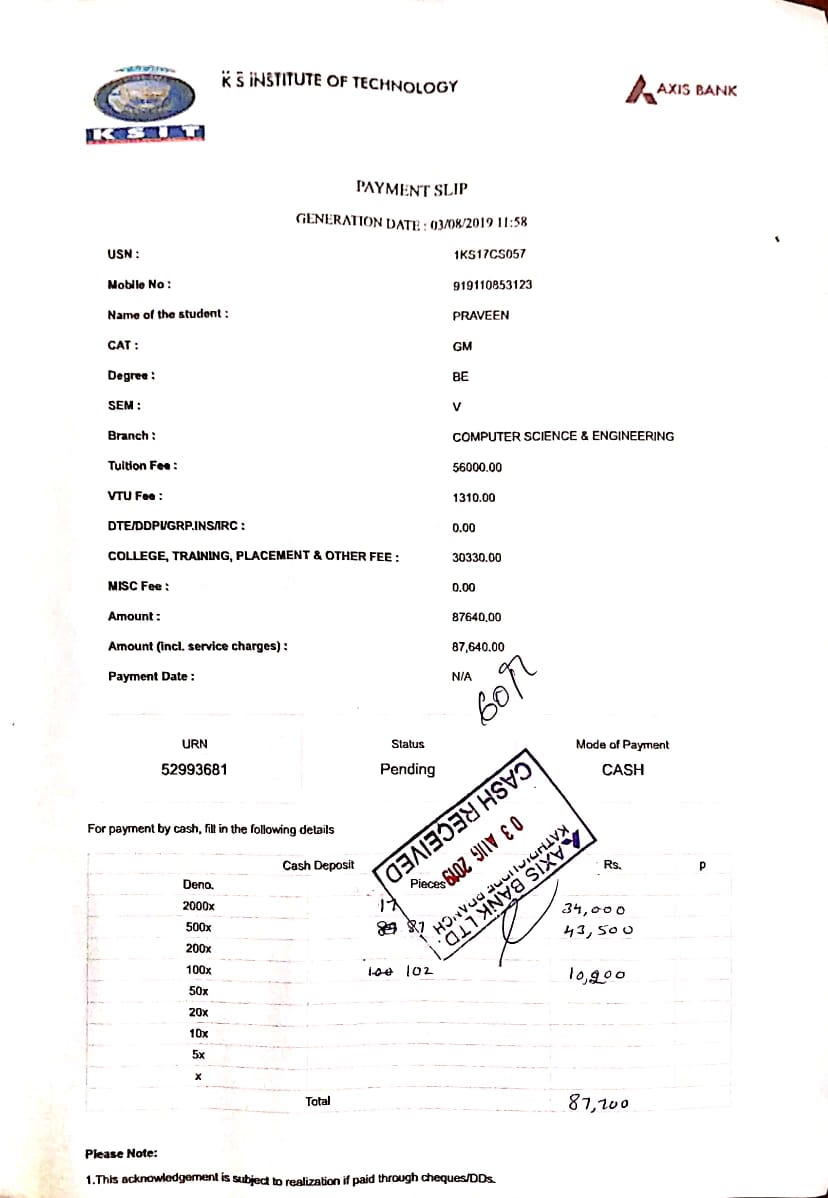 K S INSTITUTE OF TECHNOLOGY
AXIS BANK
K S I T
PAYMENT SLIP
GENERATION DATE : 03/08/2019 11:58
USN : 1KS17CS057
Mobile No : 919110853123
Name of the student : PRAVEEN
CAT : GM
Degree : BE
SEM : V
Branch : COMPUTER SCIENCE & ENGINEERING
Tuition Fee : 56000.00
VTU Fee : 1310.00
DTE/DDPI/GRP.INS/IRC : 0.00
COLLEGE, TRAINING, PLACEMENT & OTHER FEE : 30330.00
MISC Fee : 0.00
Amount : 87640.00
Amount (incl. service charges) : 87,640.00
Payment Date : N/A
URN Status Mode of Payment
52993681 Pending CASH
CASH RECEIVED
03 AUG 2019
AXIS BANK LTD.
BRANCH
For payment by cash, fill in the following details
Cash Deposit Rs. P
Deno. Pieces
2000x 17 34,000
500x 87 43,500
200x
100x 100 102 10,200
50x
20x
10x
5x
x
Total 87,700
Please Note:
1.This acknowledgement is subject to realization if paid through cheques/DDs.